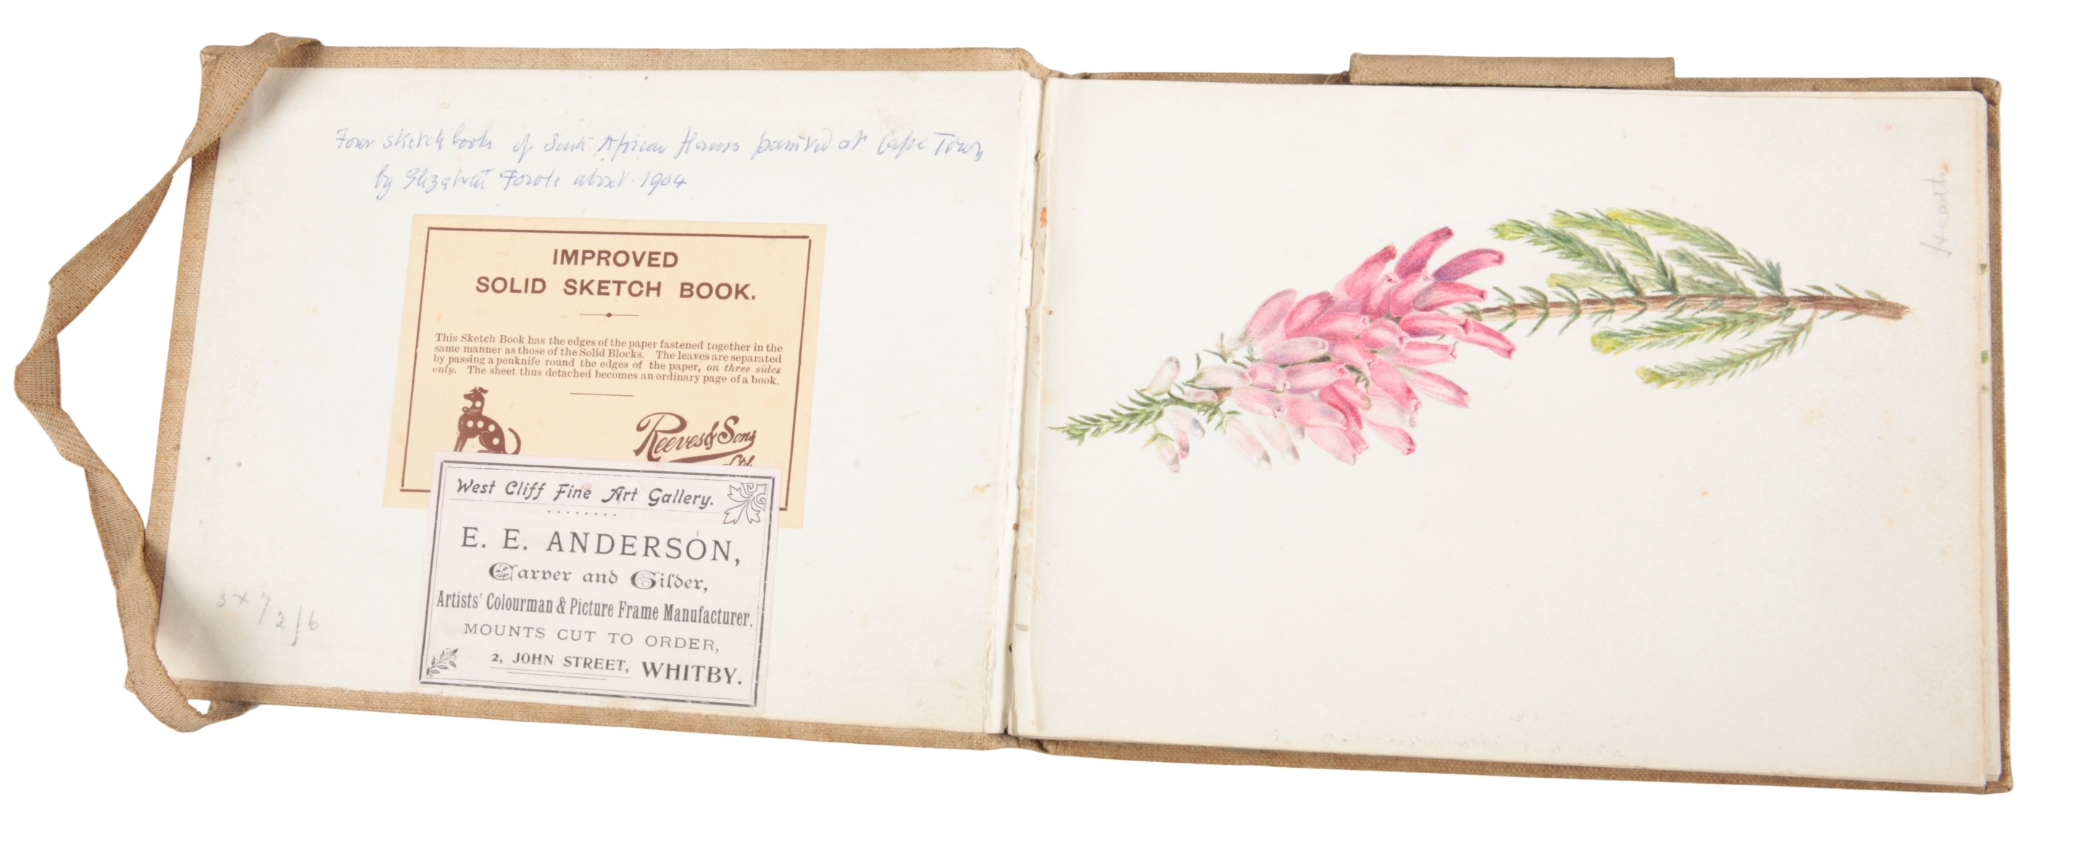 Four sketch books of South African flowers painted at Cape Town
by Elizabeth about 1904
IMPROVED
SOLID SKETCH BOOK.
This Sketch Book has the edges of the paper fastened together in the
same manner as those of the Solid Blocks. The leaves are separated
by passing a penknife round the edges of the paper, on three sides
only. The sheet thus detached becomes an ordinary page of a book.
Reeves & Sons
Ltd
West Cliff Fine Art Gallery.
E. E. ANDERSON,
Carver and Gilder,
Artists' Colourman & Picture Frame Manufacturer,
MOUNTS CUT TO ORDER,
2, JOHN STREET, WHITBY.
5 x 7 2/6
Heath